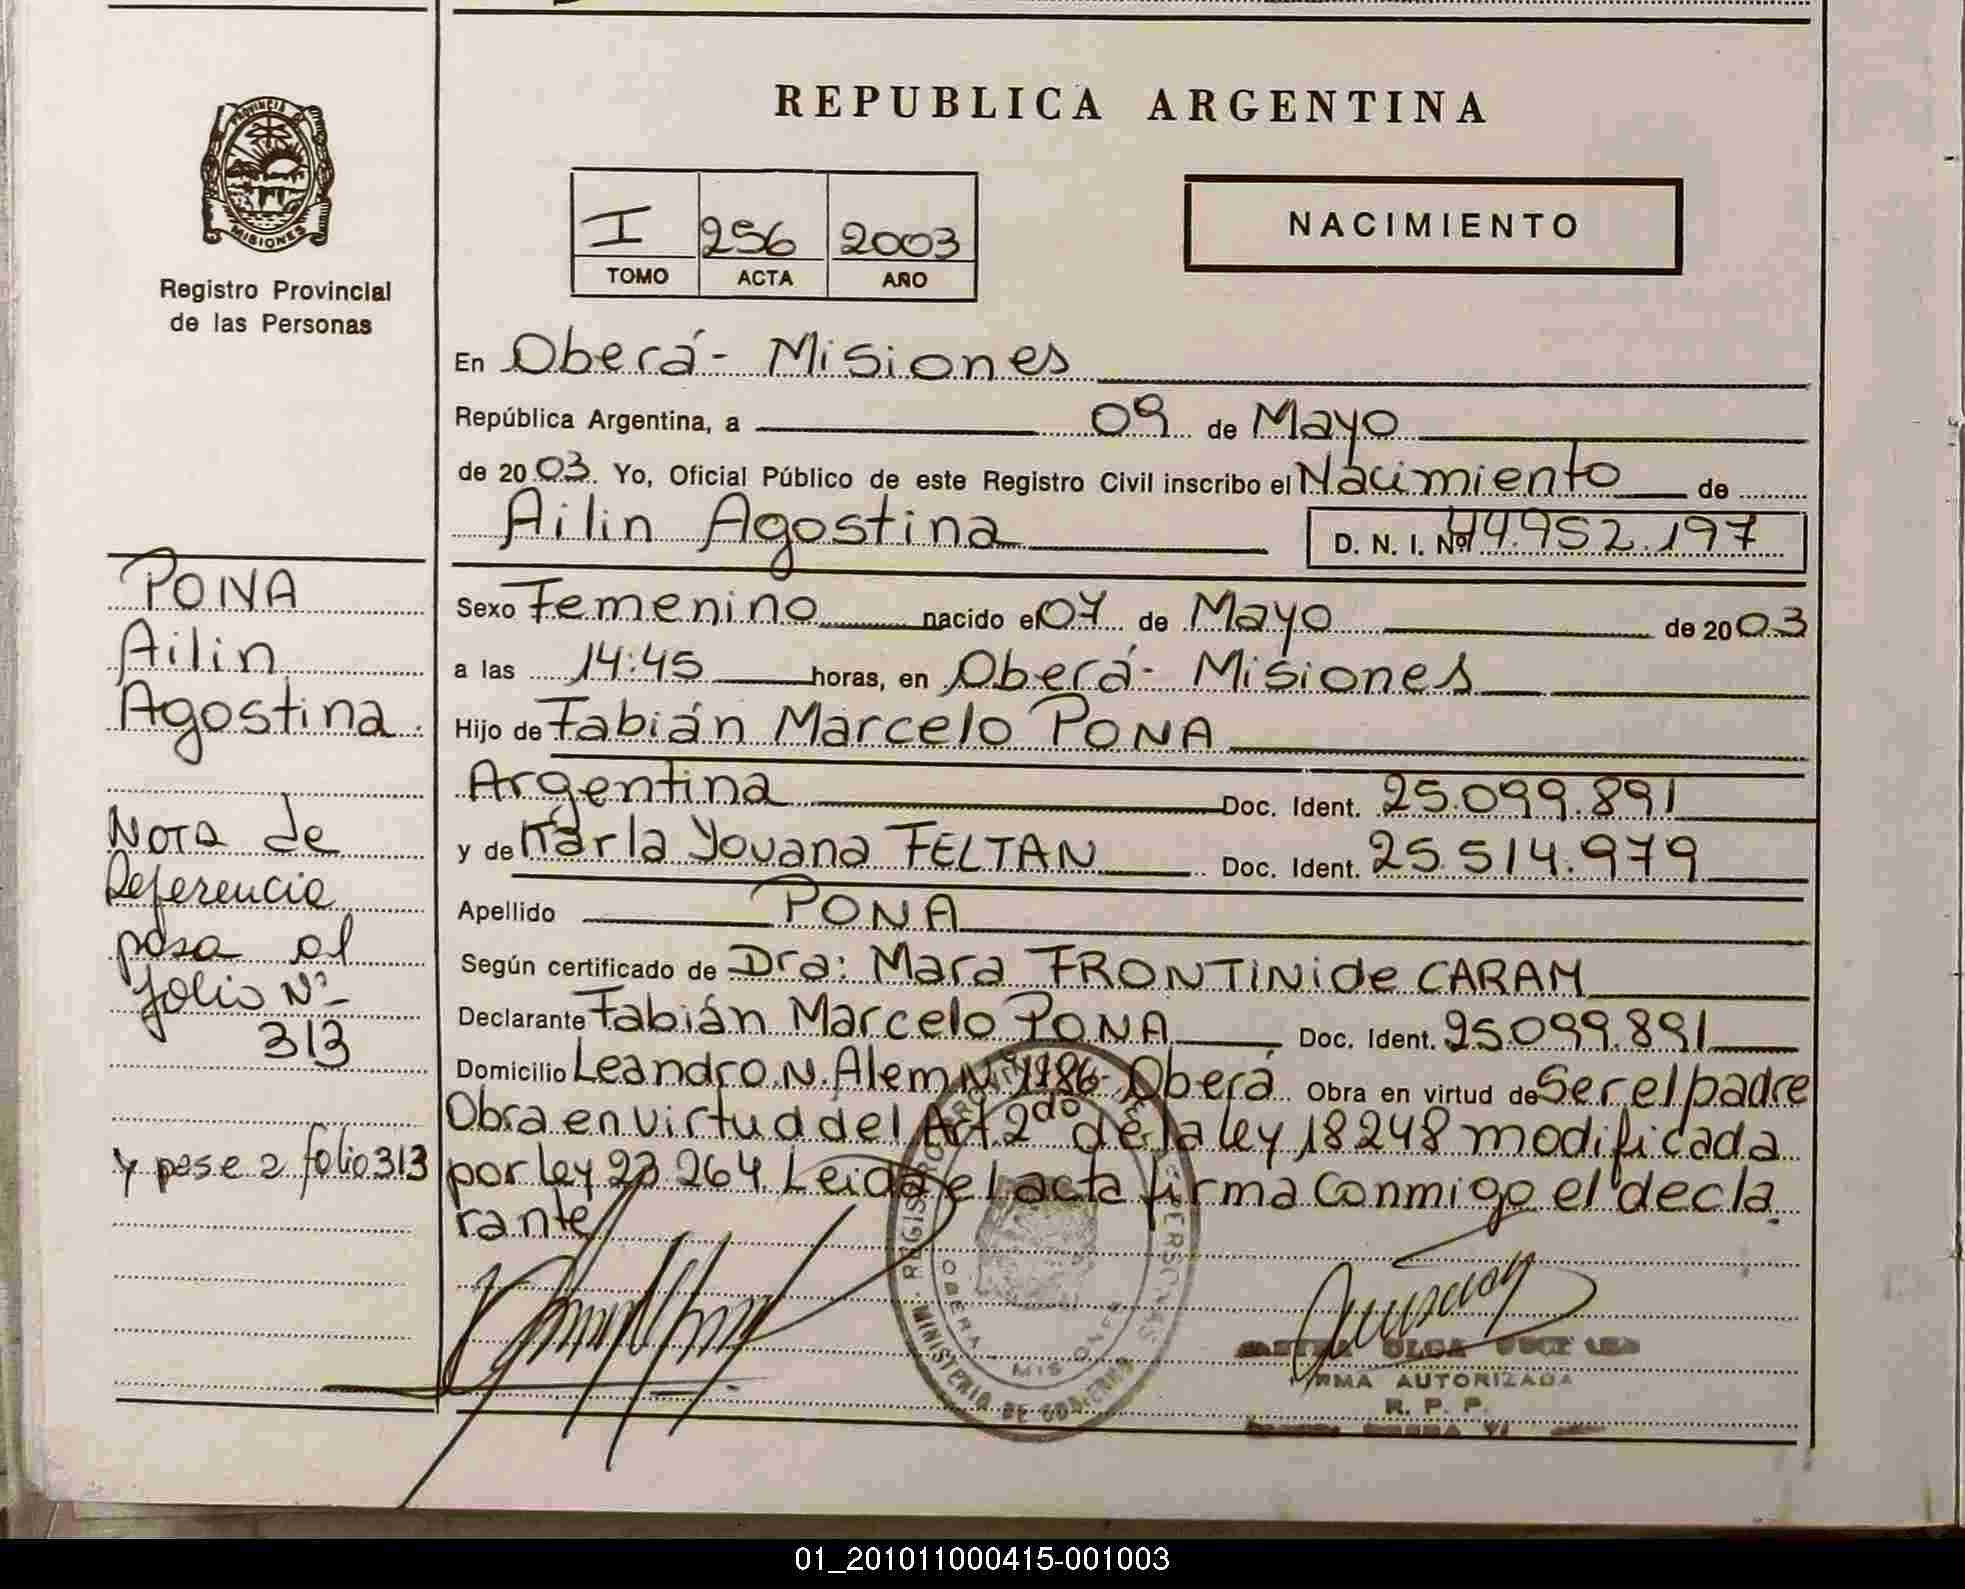 REPUBLICA ARGENTINA
PROVINCIA DE
MISIONES
Registro Provincial
de las Personas
I 256 2003
TOMO ACTA AÑO
NACIMIENTO
En Oberá- Misiones
República Argentina, a 09 de Mayo
de 2003. Yo, Oficial Público de este Registro Civil inscribo el Nacimiento de
Ailin Agostina D. N. I. Nº 44.952.197
Sexo Femenino nacido el 07 de Mayo de 2003
a las 14:45 horas, en Oberá- Misiones
Hijo de Fabián Marcelo PONA
Argentina Doc. Ident. 25.099.891
y de Karla Yovana FELTAN Doc. Ident. 25.514.979
Apellido PONA
Según certificado de Dra: Mara FRONTINI de CARAM
Declarante Fabián Marcelo PONA Doc. Ident. 25.099.891
Domicilio Leandro.N.Alem Nº 1186- Oberá Obra en virtud de Ser el padre
Obra en virtud del Art 2do de la ley 18248 modificada
por ley 23 264. Leida el acta firma Conmigo el decla
rante
PONA
Ailin
Agostina.
Nota de
Referencia
pasa al
folio Nº
313
y pase a folio 313
REGISTRO PROVINCIAL DE LAS PERSONAS
OBERA - MISIONES
MINISTERIO DE GOBIERNO
OLGA
FIRMA AUTORIZADA
R. P. P.
01_201011000415-001003